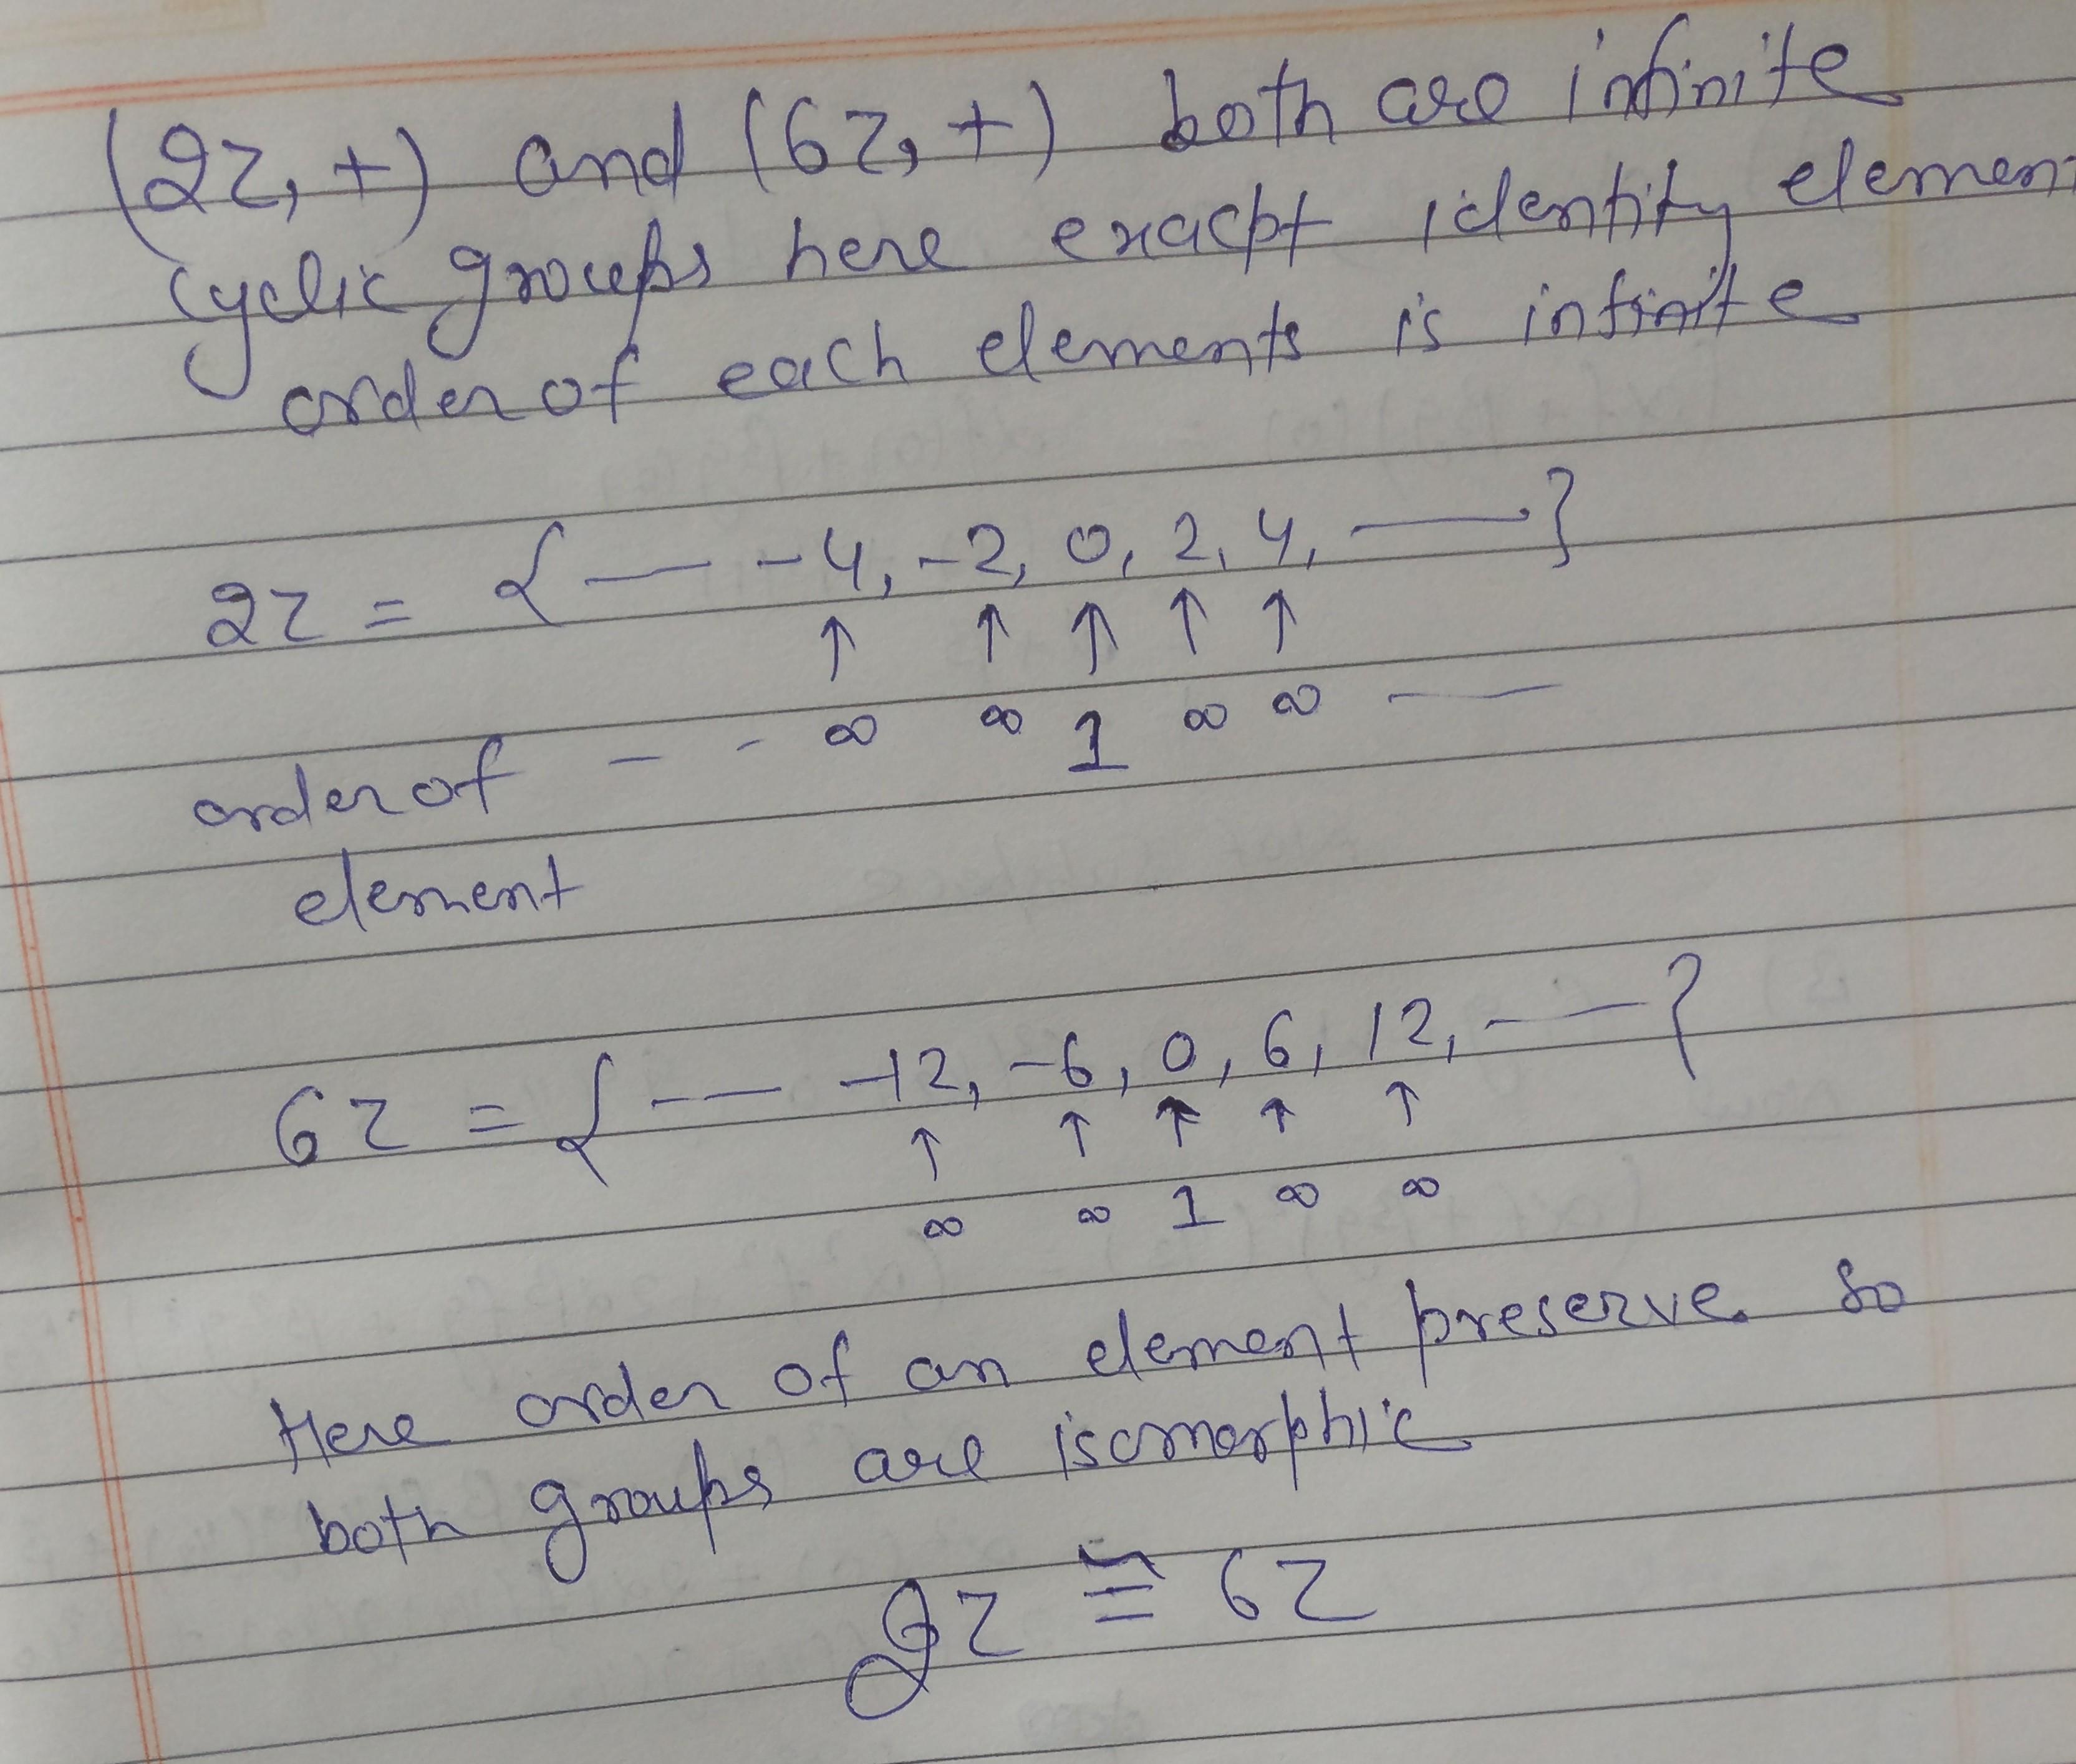 (2Z, +) and (6Z, +) both are infinite
cyclic groups here exacpt identity element
order of each elements is infinite
2Z = { — -4, -2, 0, 2, 4, — }
↑ ↑ ↑ ↑ ↑
order of - - ∞ ∞ 1 ∞ ∞ —
element
6Z = { -— -12, -6, 0, 6, 12, -— }
↑ ↑ ↑ ↑ ↑
∞ ∞ 1 ∞ ∞
Here order of an element preserve. So
both groups are isomorphic
2Z ≅ 6Z